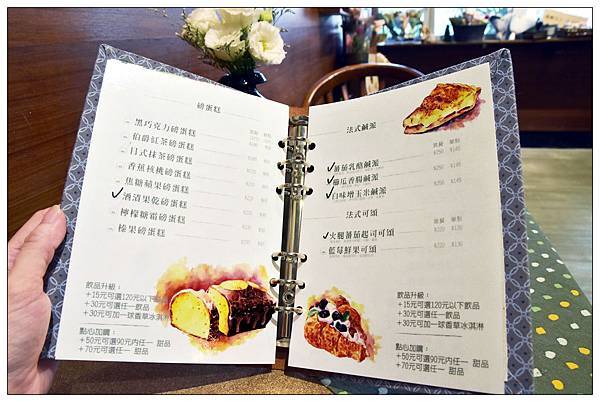 磅蛋糕
黑巧克力磅蛋糕
伯爵紅茶磅蛋糕
日式抹茶磅蛋糕
香蕉核桃磅蛋糕
焦糖蘋果磅蛋糕
酒漬果乾磅蛋糕
檸檬糖霜磅蛋糕
榛果磅蛋糕
飲品升級：
+15元可選120元以下飲品
+30元可選任一飲品
+30元可加一球香草冰淇淋
點心加購：
+50元可選90元內任一 甜品
+70元可選任一 甜品
法式鹹派
套餐 單點
蕃茄乳酪鹹派 $250 $145
$250 $145
白味噌玉米鹹派 $250 $145
法式可頌
套餐 單點
火腿蕃茄起司可頌 $220 $130
藍莓鮮果可頌 $220 $130
飲品升級：
+15元可選120元以下飲品
+30元可選任一飲品
+30元可加一球香草冰淇淋
點心加購：
+50元可選90元內任一 甜品
+70元可選任一 甜品